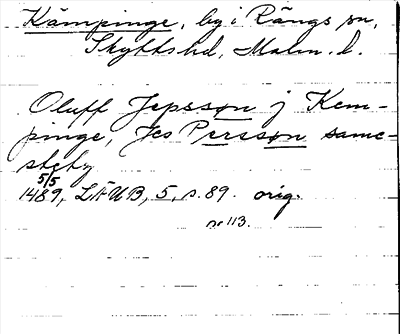 Kämpinge, by i Rängs sn,
Skytts hd, Malm. l.
Oluff Jepsson j Kem-
pinge, Jes Persson same-
stetz
5/5
1489, LÄUB, 5, s. 89. orig.
nr 113.